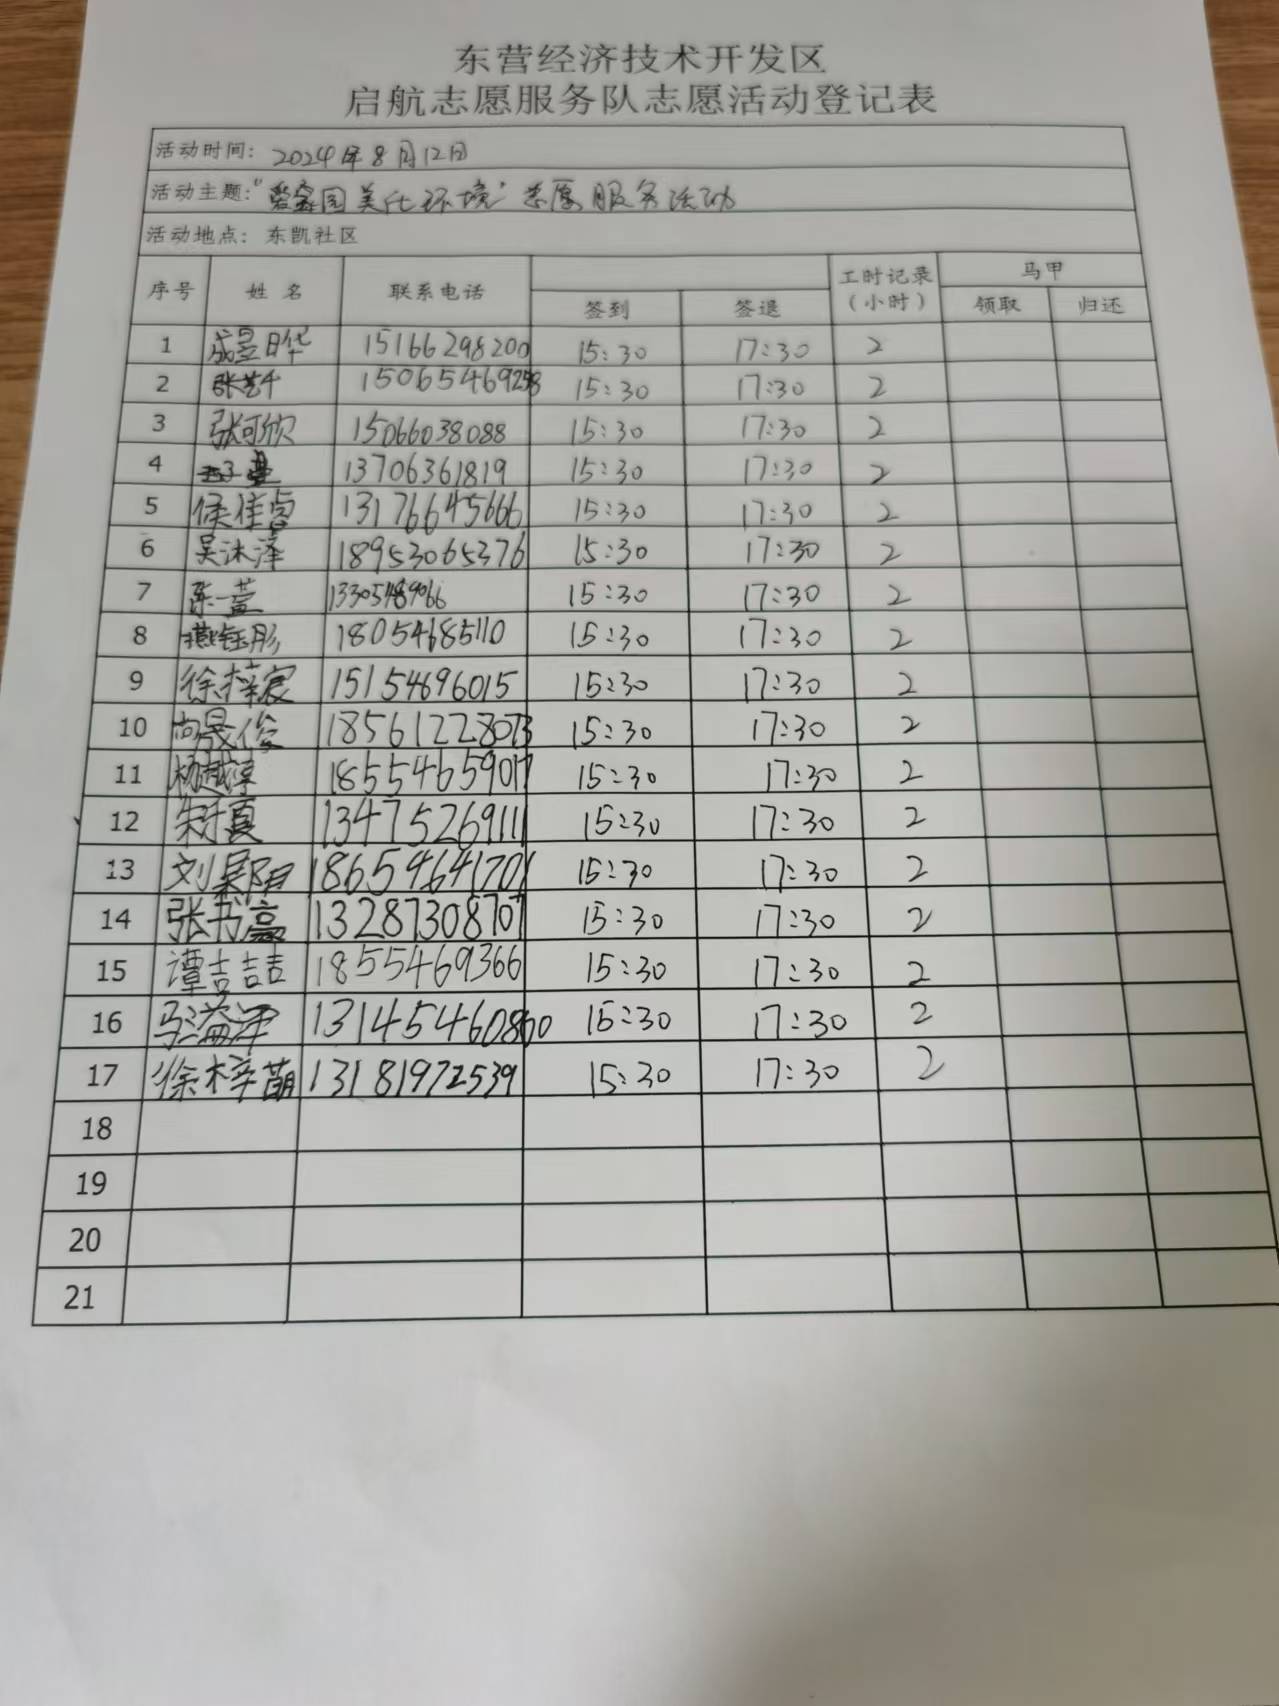 东营经济技术开发区
启航志愿服务队志愿活动登记表
活动时间: 2024年8月12日
活动主题: "爱家园美化环境"志愿服务活动
活动地点: 东凯社区
序号 姓名 联系电话 签到 签退 工时记录(小时) 马甲 领取 归还
1 成昱晔 15166298200 15:30 17:30 2
2 张艺千 15:30 17:30 2
3 张可欣 15066038088 15:30 17:30 2
4 13706361819 15:30 17:30 2
5 侯佳睿 13176645666 15:30 17:30 2
6 吴沐泽 18953065376 15:30 17:30 2
7 陈一萱 13305489066 15:30 17:30 2
8 燕钰彤 18054685110 15:30 17:30 2
9 徐梓宸 15154696015 15:30 17:30 2
10 尚晟俊 18561228073 15:30 17:30 2
11 18554659017 15:30 17:30 2
12 13475269111 15:30 17:30 2
13 刘昊阳 18654641701 15:30 17:30 2
14 张书豪 13287308707 15:30 17:30 2
15 谭吉喆 1855469366 15:30 17:30 2
16 马溢泽 15:30 17:30 2
17 徐梓萌 13181972539 15:30 17:30 2
18
19
20
21